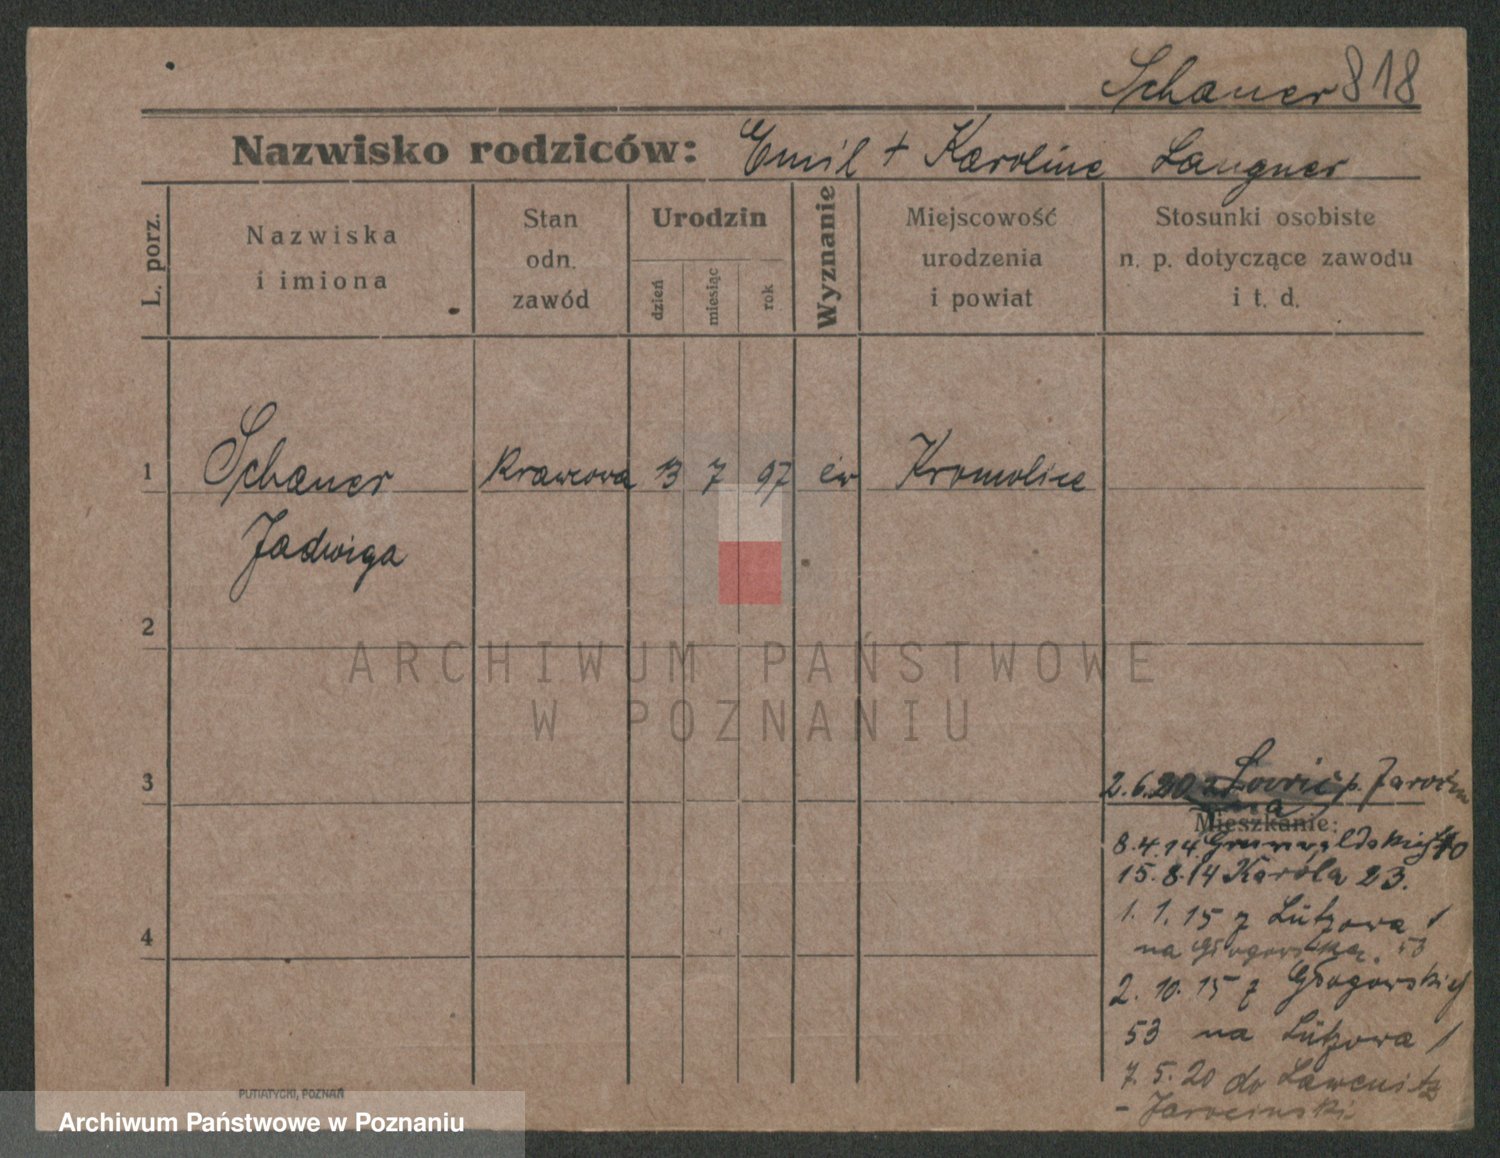 Schauer 818
Nazwisko rodziców: Emil + Karoline Laugner
L. porz.
Nazwiska
i imiona
Stan
odn.
zawód
Urodzin
dzień
miesiąc
rok
Wyznanie
Miejscowość
urodzenia
i powiat
Stosunki osobiste
n. p. dotyczące zawodu
i t. d.
1 Schauer Krawcowa 13 7 97 ew Kromolice
Jadwiga
2
ARCHIWUM PAŃSTWOWE
W POZNANIU
3
2.6.20 p. Jarocin
na
Mieszkanie:
8.4.14 Grunwaldskiej
15.8.14 Karola 23.
4
1.1.15 z Lützowa 1
na Głogowska. 53
2.10.15 z Głogowskiej
53 na Lützowa 1
7.5.20 do
- Jarocinski
PUTIATYCKI, POZNAŃ
Archiwum Państwowe w Poznaniu